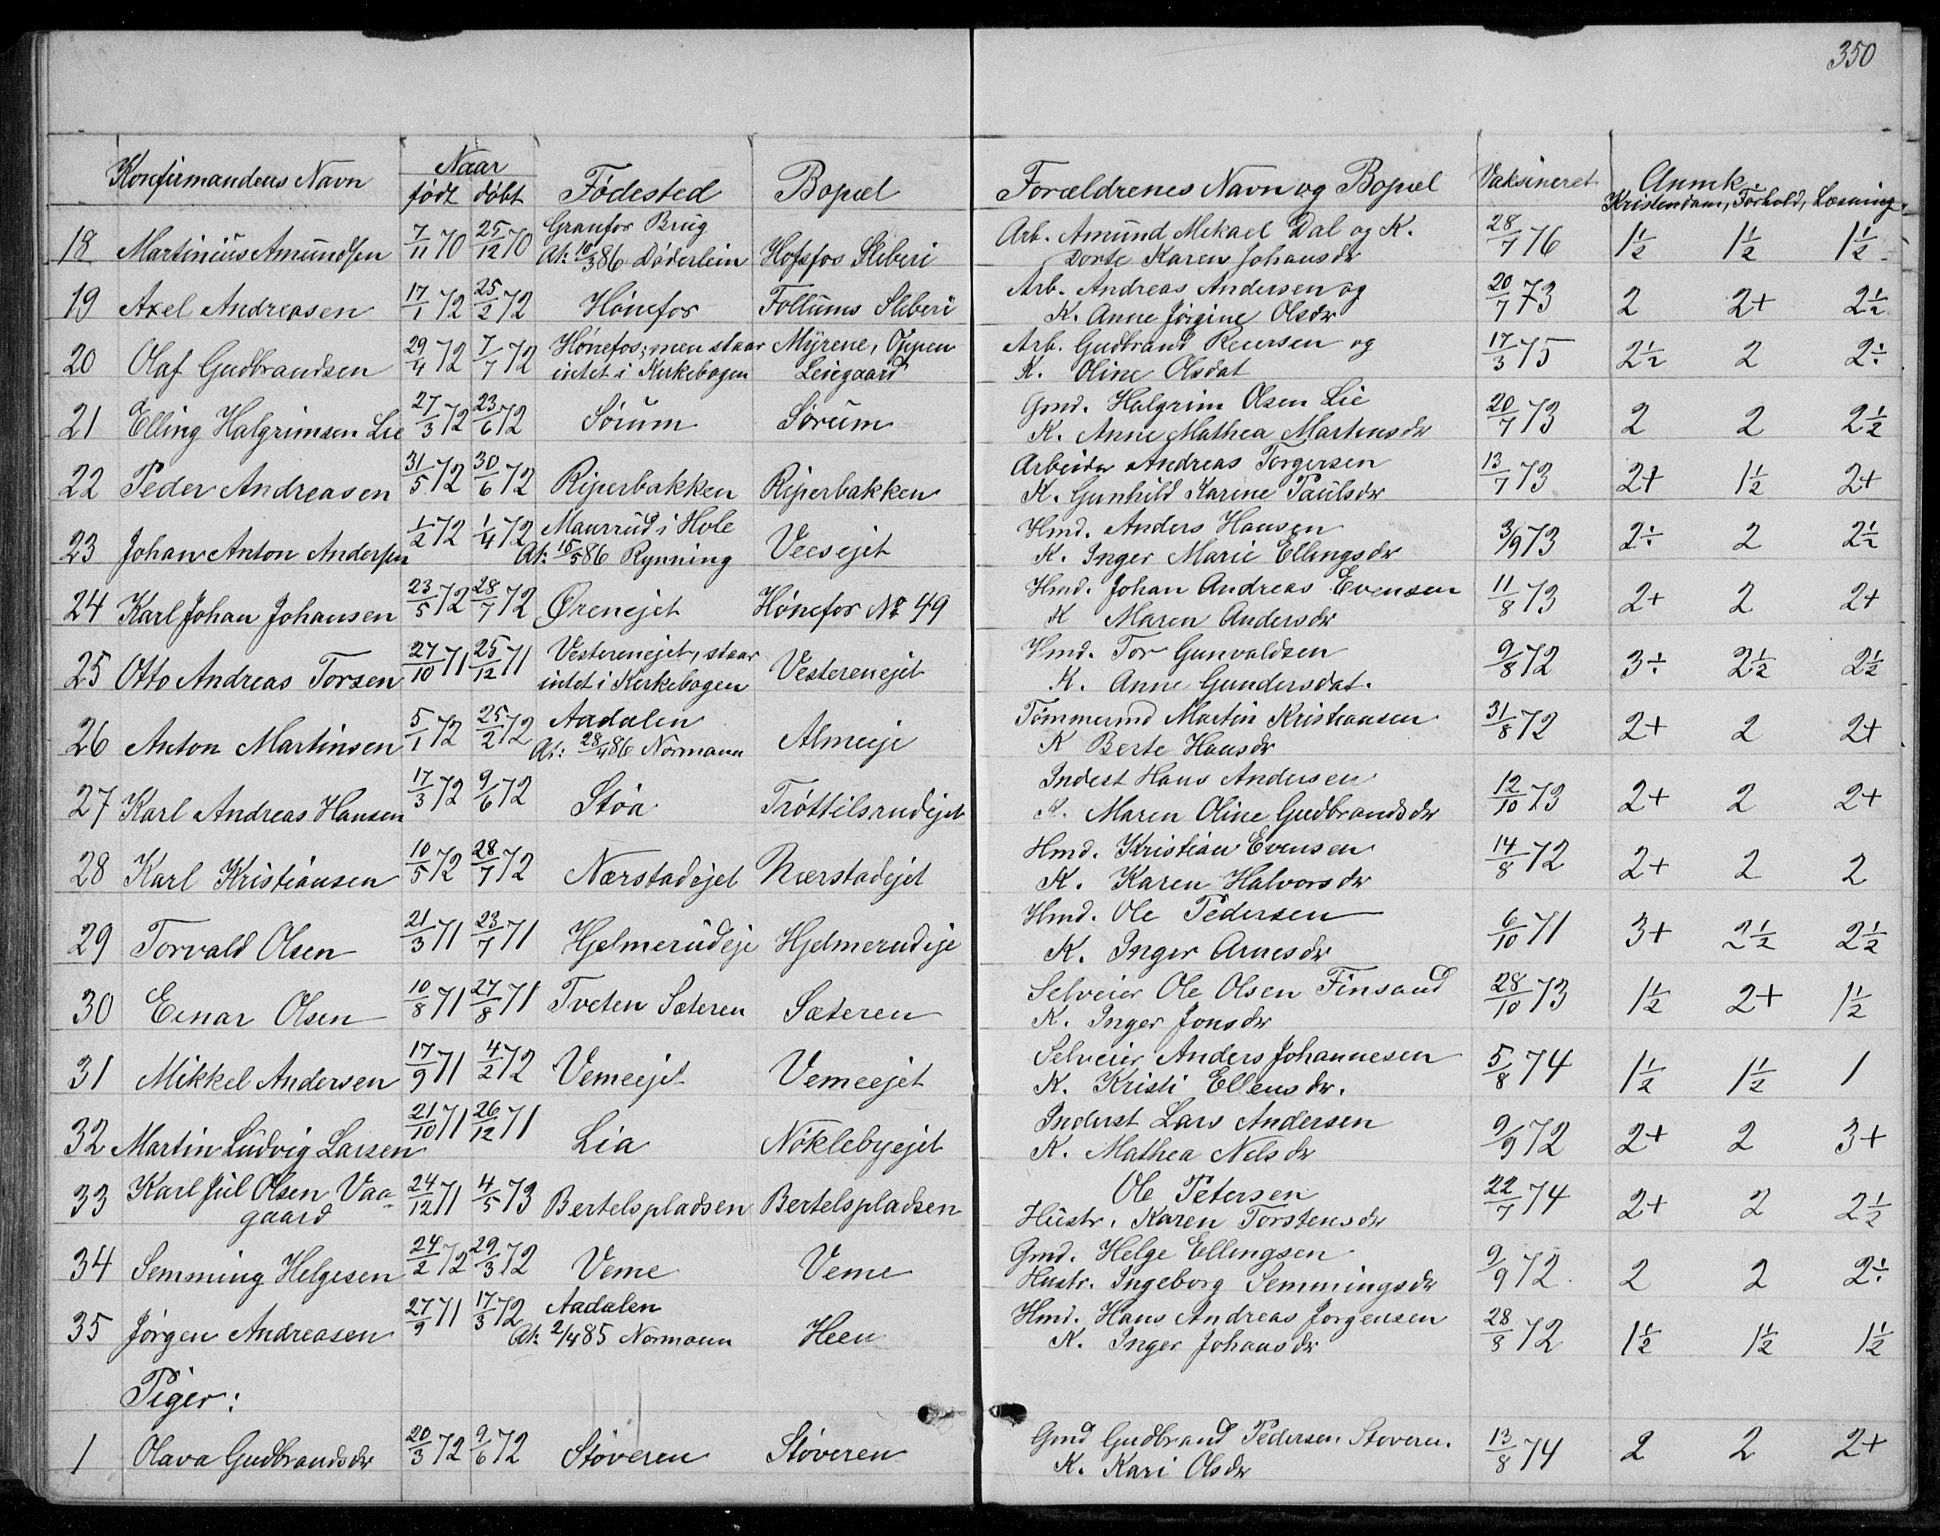 350
Konfirmandens Navn Naar født døbt Fødested Bopæl Forældrenes Navn og Bopæl Vaksineret Anmk. Kristendom, Forhold, Læsning.
18 Martinius Amundsen 7/11 70 25/12 70 Granfos Brug Hofsfos Sliberi Arb. Amund Mikael Dal og K. 28/7 76 1½ 1½ 1½
At: 10/3 86 Døderlein Dorte Karen Johansdr
19 Axel Andreasen 17/1 72 25/2 72 Hønefos Follums Sliberi Arb. Andreas Andersen og 20/7 73 2 2+ 2½
K. Anne Jørgine Olsdr
20 Olaf Gudbrandsen 29/4 72 7/7 72 Hønefos; men staar Myrene, Oppen Arb. Gudbrand Reiersen og 17/3 75 2½ 2 2÷
intet i Kirkebogen Leiegaard K. Oline Olsdat
21 Elling Halgrimsen Lie 27/3 72 23/6 72 Sørum Sørum Gmd. Halgrim Olsen Lie 20/7 73 2 2 2½
K. Anne Mathea Martinsdr
22 Peder Andreasen 31/5 72 30/6 72 Riperbakken Riperbakken Arbeider Andreas Torgersen 13/7 73 2+ 1½ 2+
K. Gunhild Karine Paulsdr
23 Johan Anton Andersen 1/2 72 1/4 72 Maurrud i Hole Veesejet Hmd. Anders Hansen 3/9 73 2÷ 2 2½
At: 15/5 86 Rynning K. Inger Marie Ellingsdr
24 Karl Johan Johansen 23/5 72 28/7 72 Ørenejet Hønefos No 49 Hmd. Johan Andreas Evensen 11/8 73 2+ 2 2+
K Maren Andersdr
25 Otto Andreas Torsen 27/10 71 25/12 71 Vesterenejet, staar Vesterenejet Hmd. Tor Gunvaldsen 9/8 72 3÷ 2½ 2½
intet i Kirkebogen K. Anne Gundersdat.
26 Anton Martinsen 5/1 72 25/2 72 Aadalen Almeje Tømmermd Martin Kristiansen 31/8 72 2+ 2 2+
At: 28/4 86 Normann K Berte Hansdr
27 Karl Andreas Hansen 17/3 72 9/6 72 Støa Trøttilsrudejet Inderst Hans Andersen 12/10 73 2+ 2 2+
K. Maren Oline Gudbrandsdr
28 Karl Kristiansen 10/5 72 28/7 72 Nærstadejet Nærstadejet Hmd. Kristian Evensen 14/8 72 2+ 2 2
K. Karen Halvorsdr
29 Torvald Olsen 21/3 71 23/7 71 Hjelmerudeje Hjelmerudeje Hmd. Ole Pedersen 6/10 71 3+ 2½ 2½
K. Inger Arnesdr
30 Einar Olsen 10/8 71 27/8 71 Tveten Sæteren Sæteren Selveier Ole Olsen Finsand 28/10 73 1½ 2+ 1½
K. Inger Jonsdr
31 Mikkel Andersen 17/9 71 4/2 72 Vemeejet Vemeejet Selveier Anders Johannesen 5/8 74 1½ 1½ 1
K. Kristi Ellensdr.
32 Martin Ludvig Larsen 21/10 71 26/12 71 Lia Nøklebyejet Inderst Lars Andersen 9/9 72 2+ 2 3+
K. Mathea Nilsdr
33 Karl Jul Olsen Vaa- 24/12 71 4/5 73 Bertelspladsen Bertelspladsen Ole Petersen 22/7 74 2+ 2 2½
gaard Hustr. Karen Torstensdr
34 Semming Helgesen 24/2 72 29/3 72 Veme Veme Gmd. Helge Ellingsen 9/9 72 2 2 2÷
Hustr. Ingeborg Semmingsdr
35 Jørgen Andreasen 27/9 71 17/3 72 Aadalen Heen Hmd. Hans Andreas Jørgensen 28/8 72 1½ 1½ 1½
At: 2/4 85 Normann K. Inger Johansdr
Piger:
1 Olava Gudbrandsdr 20/3 72 9/6 72 Støveren Støveren Gmd Gudbrand Pedersen Støveren. 13/8 74 2 2 2+
K. Kari Olsdr